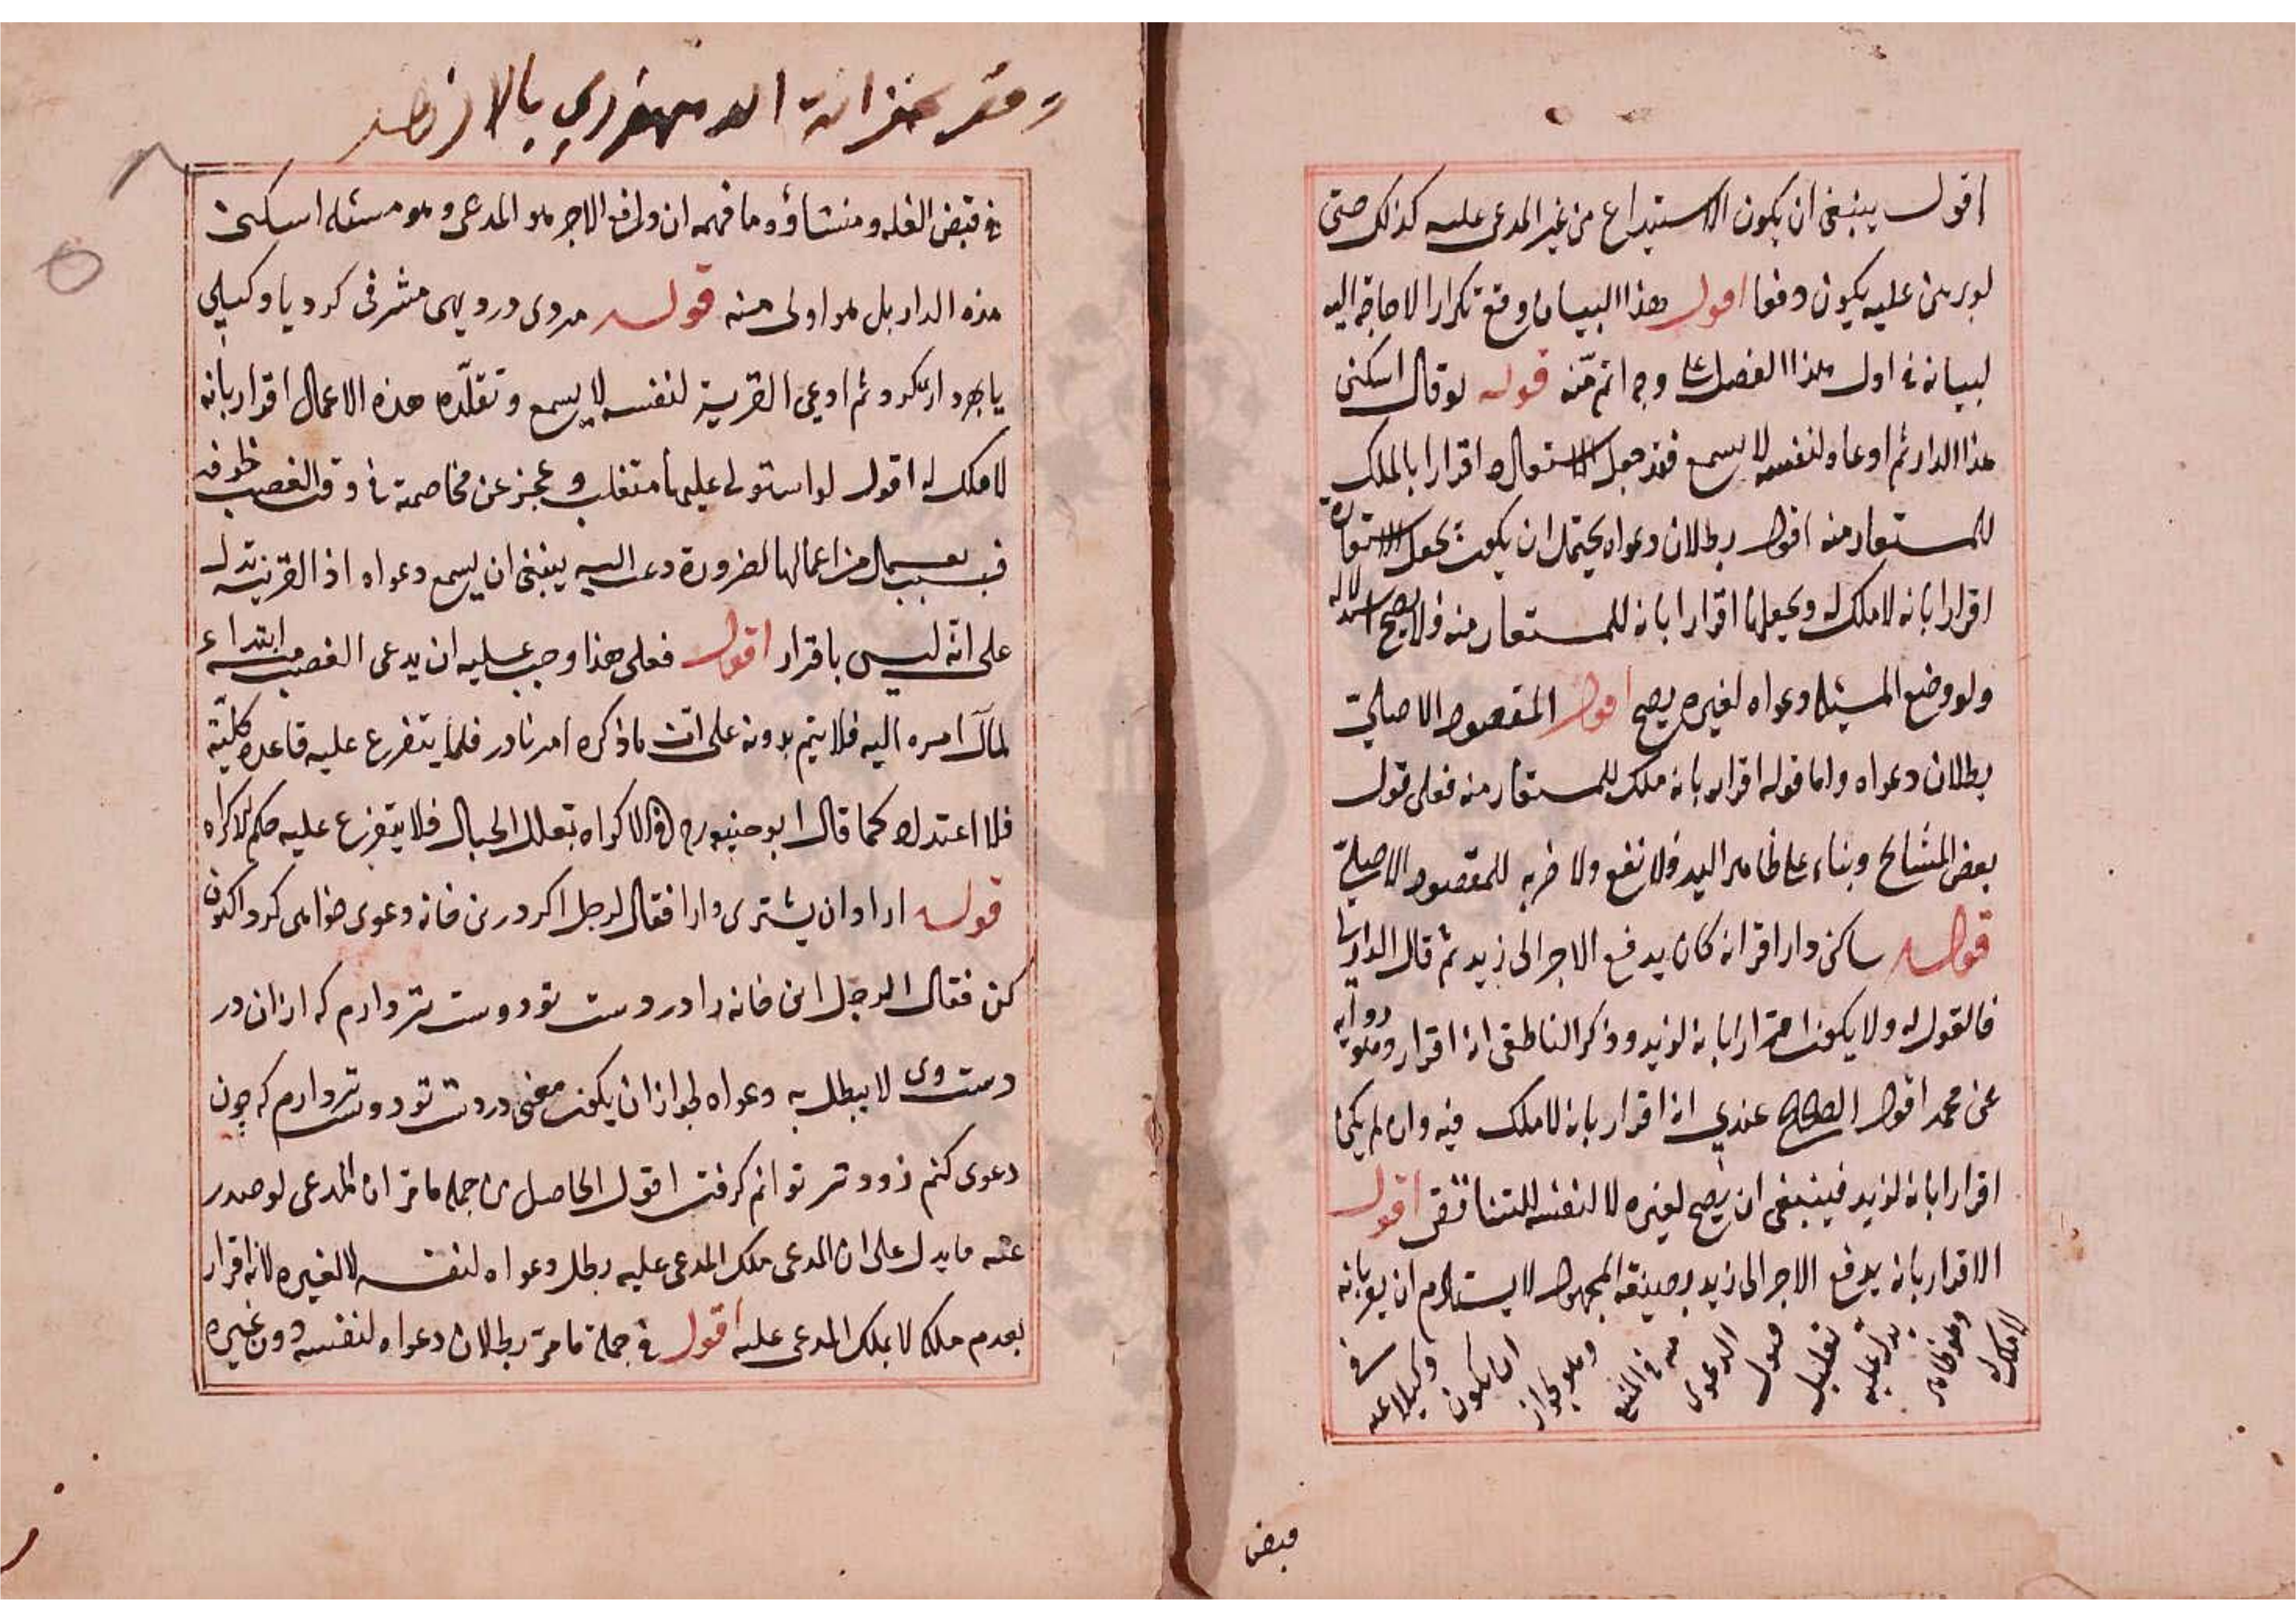 اقول ينبغى ان يكون الاستيداع من غير المدعى عليه كذلك حتى
لو برهن عليه يكون دفعا اقول هذا البيان وقع تكرارا لا حاجة اليه
لبيانه فى اول هذا الفصل على وجه اتم منه قوله لو قال اسكنى
هذا الدار ثم ادعاه لنفسه لا يسمع فقد جعل الاستعارة اقرارا بالملك
للمستعار منه اقول بطلان دعواه يحتمل ان يكون بجعل الاستعارة
اقرارا بانه لا ملك له وبجعلها اقرارا بانه للمستعار منه فلا يصح استدلاله
ولو وضع المسئلة دعواه لغيره يصح اقول المقصود الاصلىّ
بطلان دعواه واما قوله اقرار بانه ملك للمستعار منه فعلى قول
بعض المشايخ وبناء على ظاهر اليد فلا نفع ولا ضر به للمقصود الاصلىّ
قوله ساكن دار اقر انه كان يدفع الاجر الى زيد ثم قال الدار لى
فالقول له ولا يكون اقرارا بانه لزيد وذكر الناطفى انه اقرار وهو رواية
عن محمد اقول الصحيح عندي انه اقرار بانه لا ملك فيه وان لم يكن
اقرارا بانه لزيد فينبغى ان يصح لغيره لا لنفسه للتناقض اقول
الاقرار بانه يدفع الاجر الى زيد بصيغة المجهول لا يستلزم ان يقر بانه
لا ملك له وهو ظاهر يدل عليه تعليل قبول الدعوى منه فى المنع وهو بجواز ان يكون وكيلا عنه فى
قبض
دفتر خزانة الدمنهوري بالازهر
فى قبض الغله ومنشاؤه ما فهمه ان دافع الاجر هو المدعى وهو مسئله اسكنى
هذه الدار بل هو اولى منه قوله مردى در ديهى مشرفى كرد يا وكيلي
يا اجرد ارى كرد ثم ادعى القرية لنفسه لا يسمع وتقلّده هذه الاعمال اقرار بانه
لا ملك له اقول لو استولى عليها متغلب وعجز عن مخاصمة فى وقت الغصب خلوفه
فبسبب يعمل من اعمالها لضرورة دعت اليه ينبغى ان يسمع دعواه اذ القرينة تدل
على انّه ليس باقرار اقول فعلى هذا وجب عليه ان يدعى الغصب منه ابتداء
لمآل امره اليه فلا يتم بدونه على انّ ما ذكره امر نادر فلما يتفرع عليه قاعدة كليّة
فلا اعتد له كما قال ابو حنيفه رح فى الاكراه بتعلل الحبال فلا يتفرع عليه حكم الاكراه
قوله اراد ان يشترى دارا فقال لرجل اكر در اين خانه دعوى خواهى كرد اكنون
كن فقال الرجل اين خانه را در دست تو دوست تر دارم كه ازان در
دست وى لا يبطل به دعواه لجواز ان يكون معنى در دست تو دوست تر دارم كه چون
دعوى كنم زودتر توانم كرفت اقول الحاصل من جملة ما مر ان المدعى لو صدر
عنه ما يدل على ان المدعى ملك المدعى عليه بطل دعواه لنفسه لا لغيره لانه اقرار
بعدم ملكه لا بملك المدعى عليه اقول فى جملة ما مرّ بطلان دعواه لنفسه دون غيره